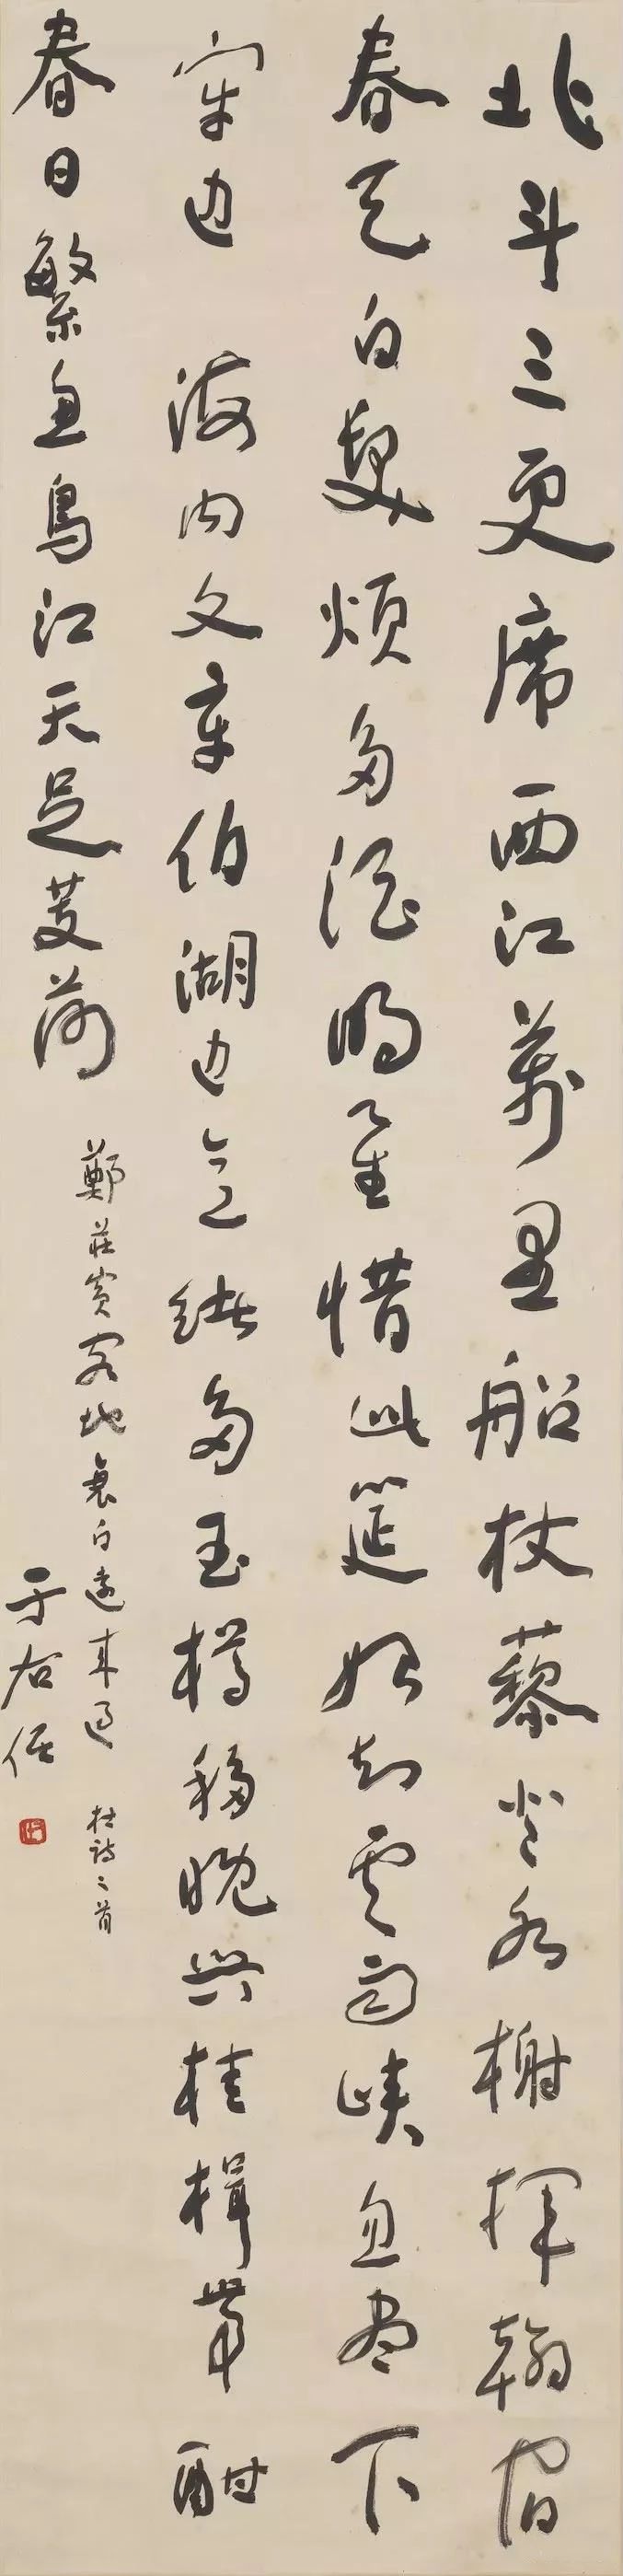 北斗三更席西江萬里船杖藜登水榭揮翰宿
春天白髮煩多酒明星惜此筵始知雲雨峽忽盡下
牢邊 海內文章伯湖邊意緒多玉樽移晚興桂楫帶酣
春日繁魚鳥江天足芰荷
鄭莊賓客地衰白遠來過 杜詩二首
于右任